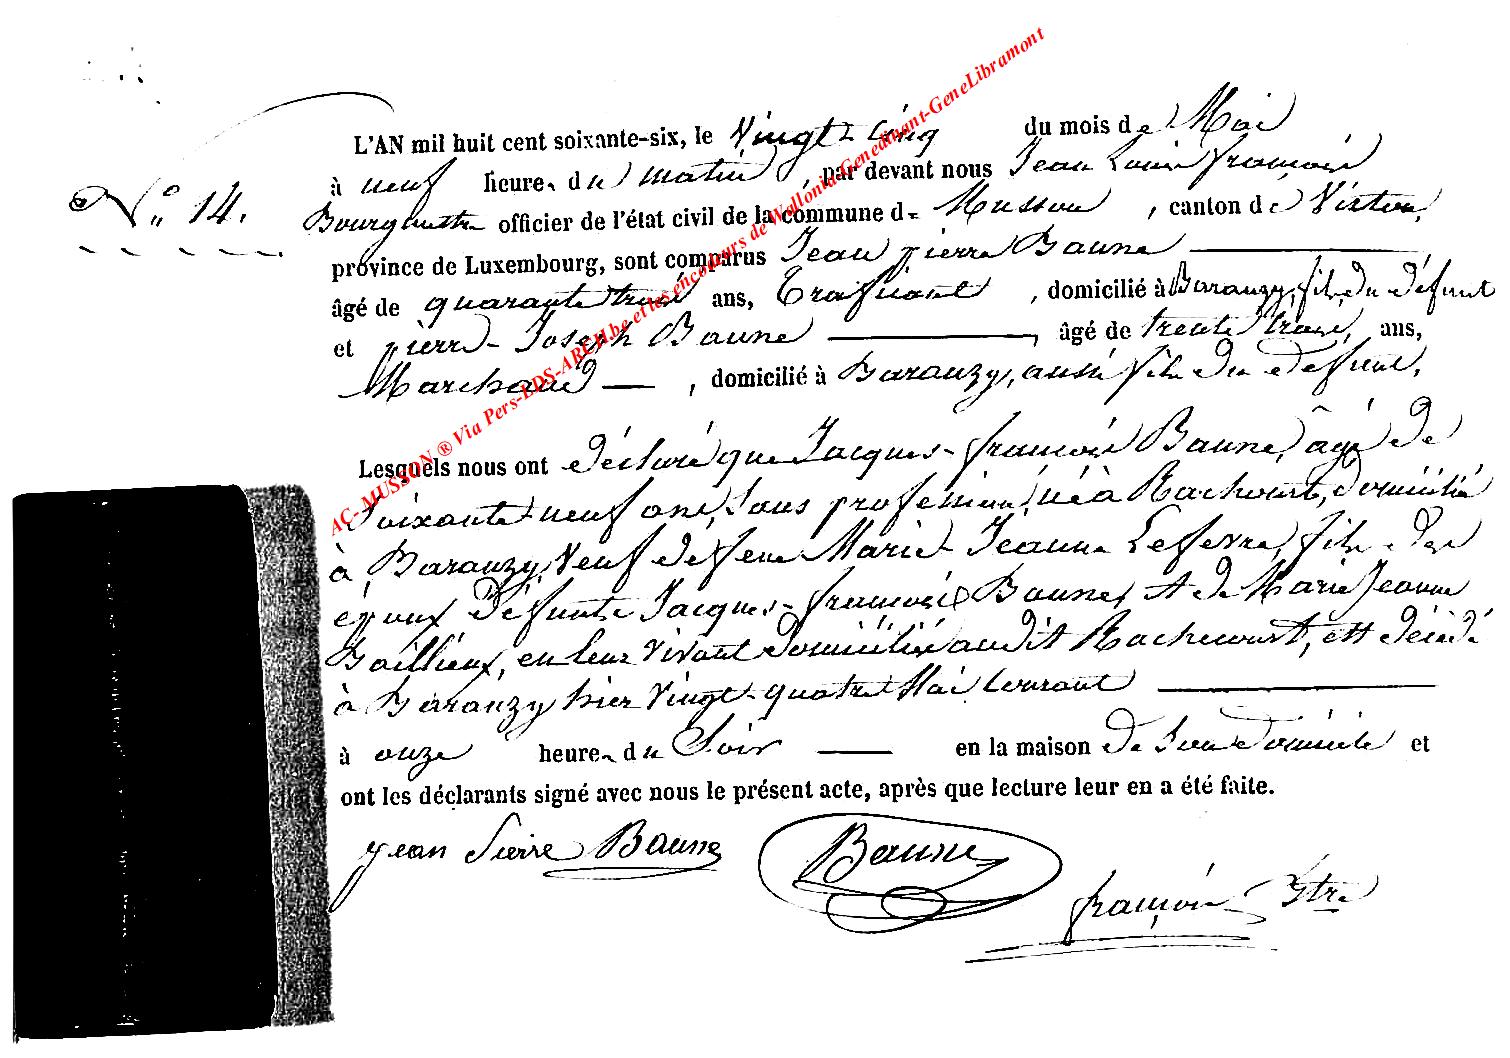 L'AN mil huit cent soixante-six, le Vingt-Cinq du mois de Mai
N° 14. à neuf heures du matin, par devant nous Jean Louis françois
Bourgmestre officier de l'état civil de la commune de Musson, canton de Virton,
province de Luxembourg, sont comparus Jean pierre Baune
âgé de quarante trois ans, Trafiant, domicilié à Baranzy, fils du défunt
et pierre-Joseph Baune, âgé de trente trois, ans,
Marchand, domicilié à Baranzy, aussi fils du défunt,
Lesquels nous ont déclaré que Jacques-françois Baune, âgé de
Soixante-neuf ans, Sans profession, né à Rachecourt, domicilié
à Baranzy, Veuf de feue Marie-Jeanne Lefevre, fils des
époux défunts Jacques-françois Baune, et de Marie Jeanne
Baillieux, en leur Vivant domiciliés audit Rachecourt, est décédé
à Baranzy hier Vingt-quatre Mai Courant
à onze heures du Soir en la maison de Son domicile et
ont les déclarants signé avec nous le présent acte, après que lecture leur en a été faite.
Jean Pierre Baune Baune
françois Bstre
AC-MUSSON ® Via Pers-LDS-ARCH.be et les encodeurs de Wallonia-Genedinant-GeneLibramont